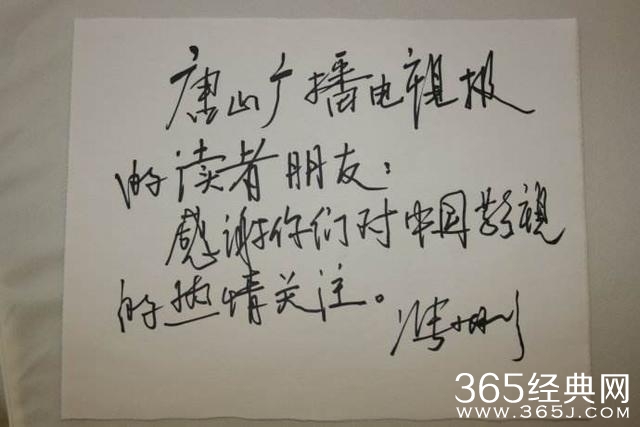 唐山广播电视报
的读者朋友：
感谢你们对中国影视
的热情关注。
冯小刚
365经典网
WWW.365J.COM